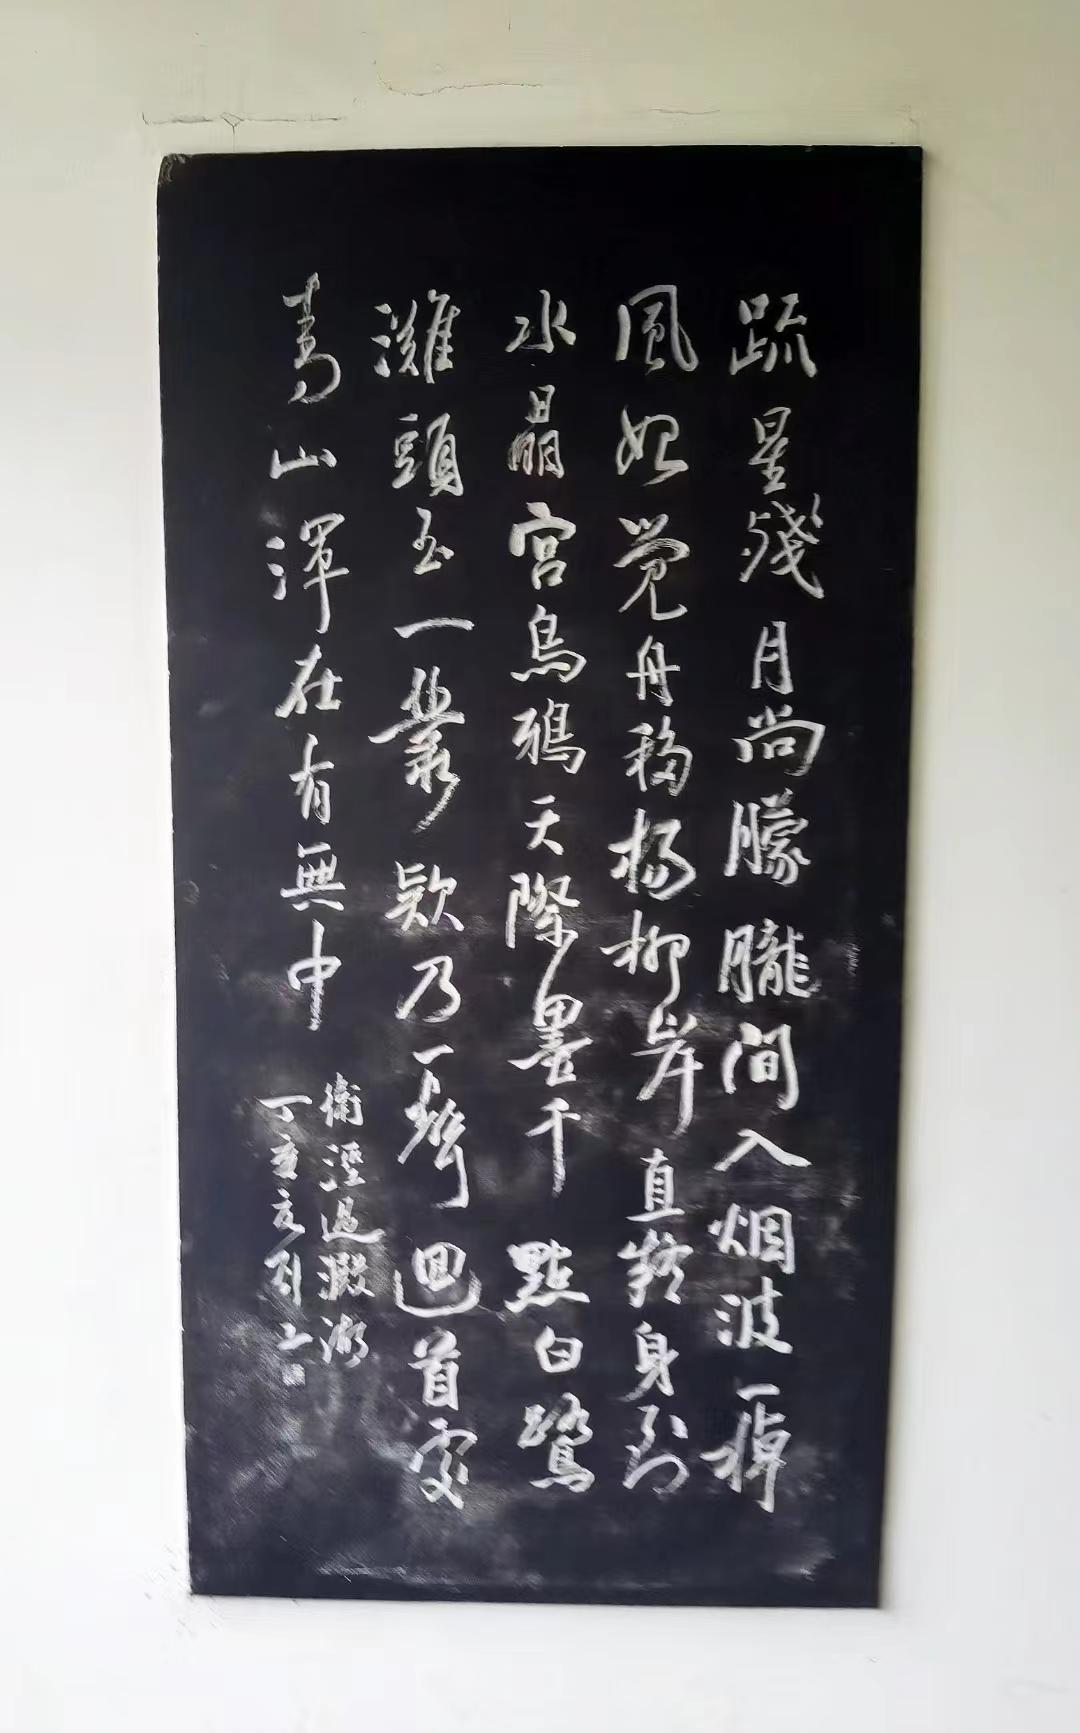 疏星殘月尚朦朧間入烟波一棹
風始覺舟移楊柳岸直疑身到
水晶宮烏鴉天際墨千點白鷺
灘頭玉一叢欵乃一聲迴首處
青山渾在有無中
衛涇過澱湖
丁亥